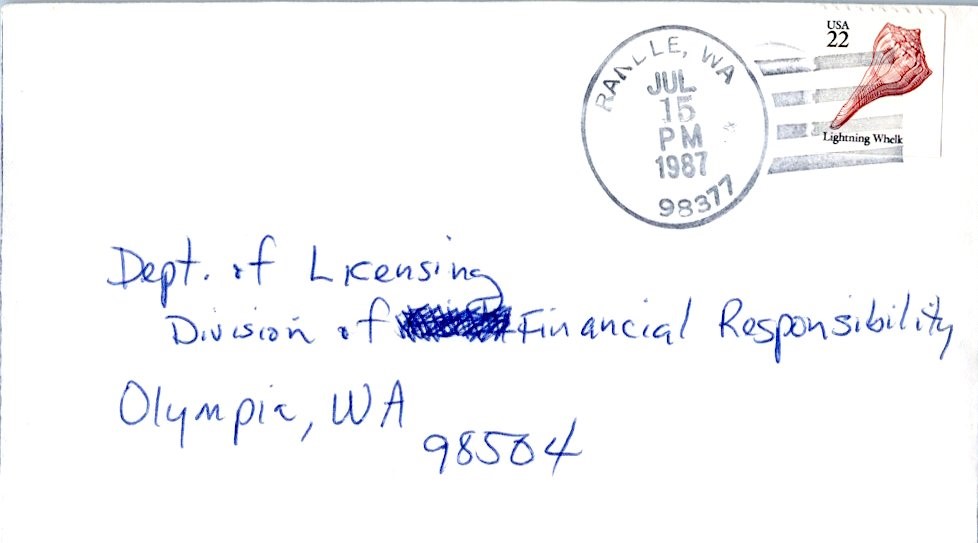 USA
22
Lightning Whelk
RANDLE, WA
JUL
15
PM
1987
98377
Dept. of Licensing
Division of Financial Responsibility
Olympia, WA
98504